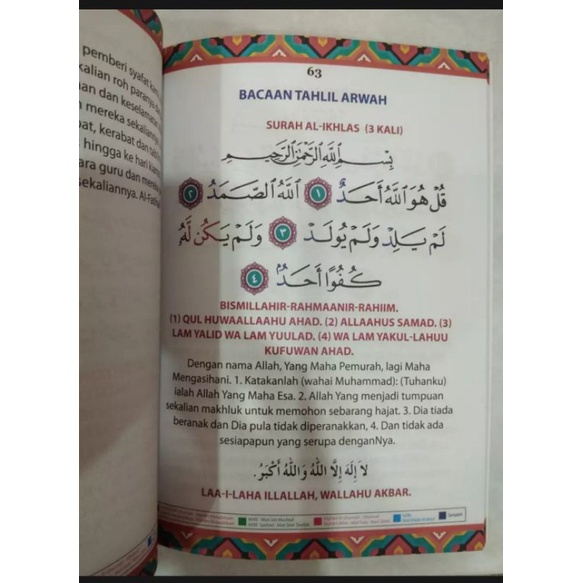 pemberi syafat
kalian roh
an dan keselamatan
mereka sekalian
at, kerabat dan
hingga ke hari
ara guru dan
sekaliannya.
63
BACAAN TAHLIL ARWAH
SURAH AL-IKHLAS (3 KALI)
بِسْمِ اللَّهِ الرَّحْمَٰنِ الرَّحِيمِ
قُلْ هُوَ اللَّهُ أَحَدٌ ١ اللَّهُ الصَّمَدُ ٢
لَمْ يَلِدْ وَلَمْ يُولَدْ ٣ وَلَمْ يَكُن لَّهُ
كُفُوًا أَحَدٌ ٤
BISMILLAHIR-RAHMAANIR-RAHIIM.
(1) QUL HUWAALLAAHU AHAD. (2) ALLAAHUS SAMAD. (3)
LAM YALID WA LAM YUULAD. (4) WA LAM YAKUL-LAHUU
KUFUWAN AHAD.
Dengan nama Allah, Yang Maha Pemurah, lagi Maha
Mengasihani. 1. Katakanlah (wahai Muhammad): (Tuhanku)
ialah Allah Yang Maha Esa. 2. Allah Yang menjadi tumpuan
sekalian makhluk untuk memohon sebarang hajat. 3. Dia tiada
beranak dan Dia pula tidak diperanakkan, 4. Dan tidak ada
sesiapapun yang serupa denganNya.
لاَ إِلَهَ إِلاَّ اللَّهُ وَاللَّهُ أَكْبَرُ.
LAA-I-LAHA ILLALLAH, WALLAHU AKBAR.